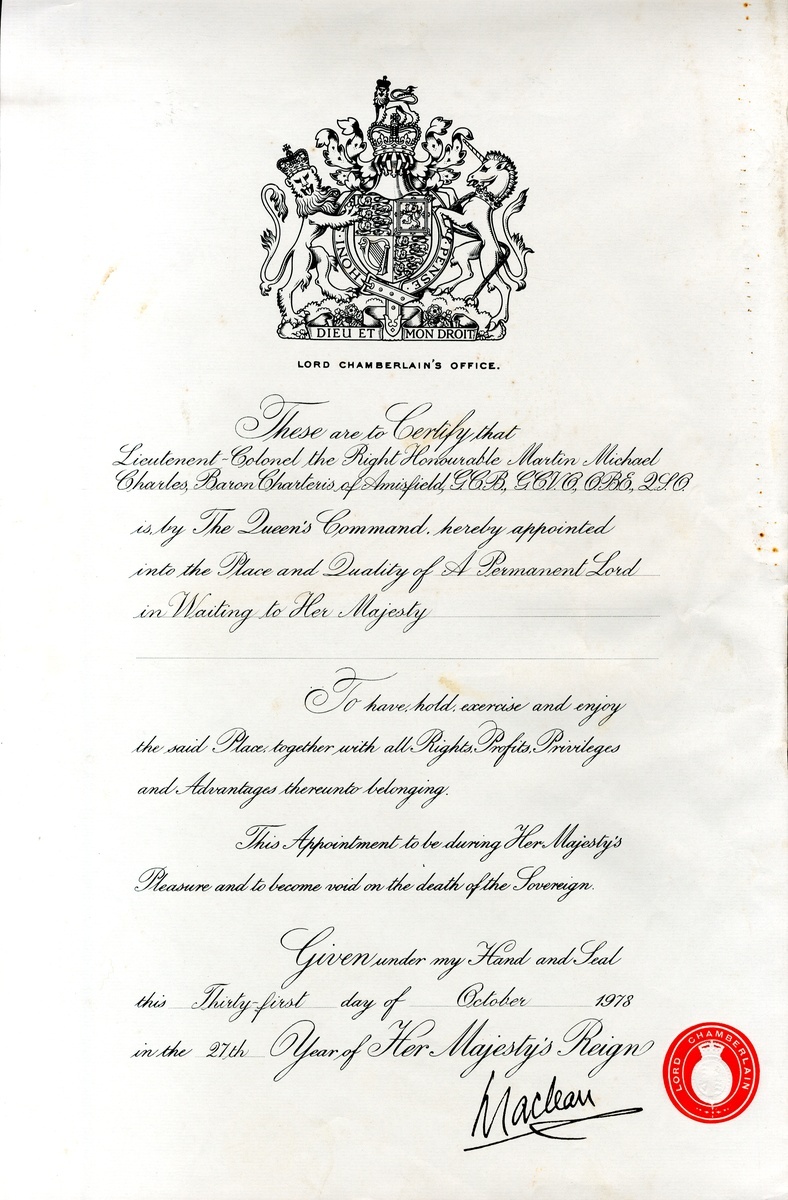 HONI
Y PENSE
DIEU ET MON DROIT
LORD CHAMBERLAIN'S OFFICE.
These are to Certify that
Lieutenent-Colonel the Right Honourable Martin Michael
Charles, Baron Charteris of Amisfield, G.C.B, G.C.V.O, O.B.E, Q.S.O.
is, by The Queen's Command, hereby appointed
into the Place and Quality of A Permanent Lord
in Waiting to Her Majesty
To have, hold, exercise and enjoy
the said Place, together with all Rights, Profits, Privileges
and Advantages thereunto belonging.
This Appointment to be during Her Majesty's
Pleasure and to become void on the death of the Sovereign.
Given under my Hand and Seal
this Thirty-first day of October 1978
in the 27th Year of Her Majesty's Reign
LORD CHAMBERLAIN
Maclean